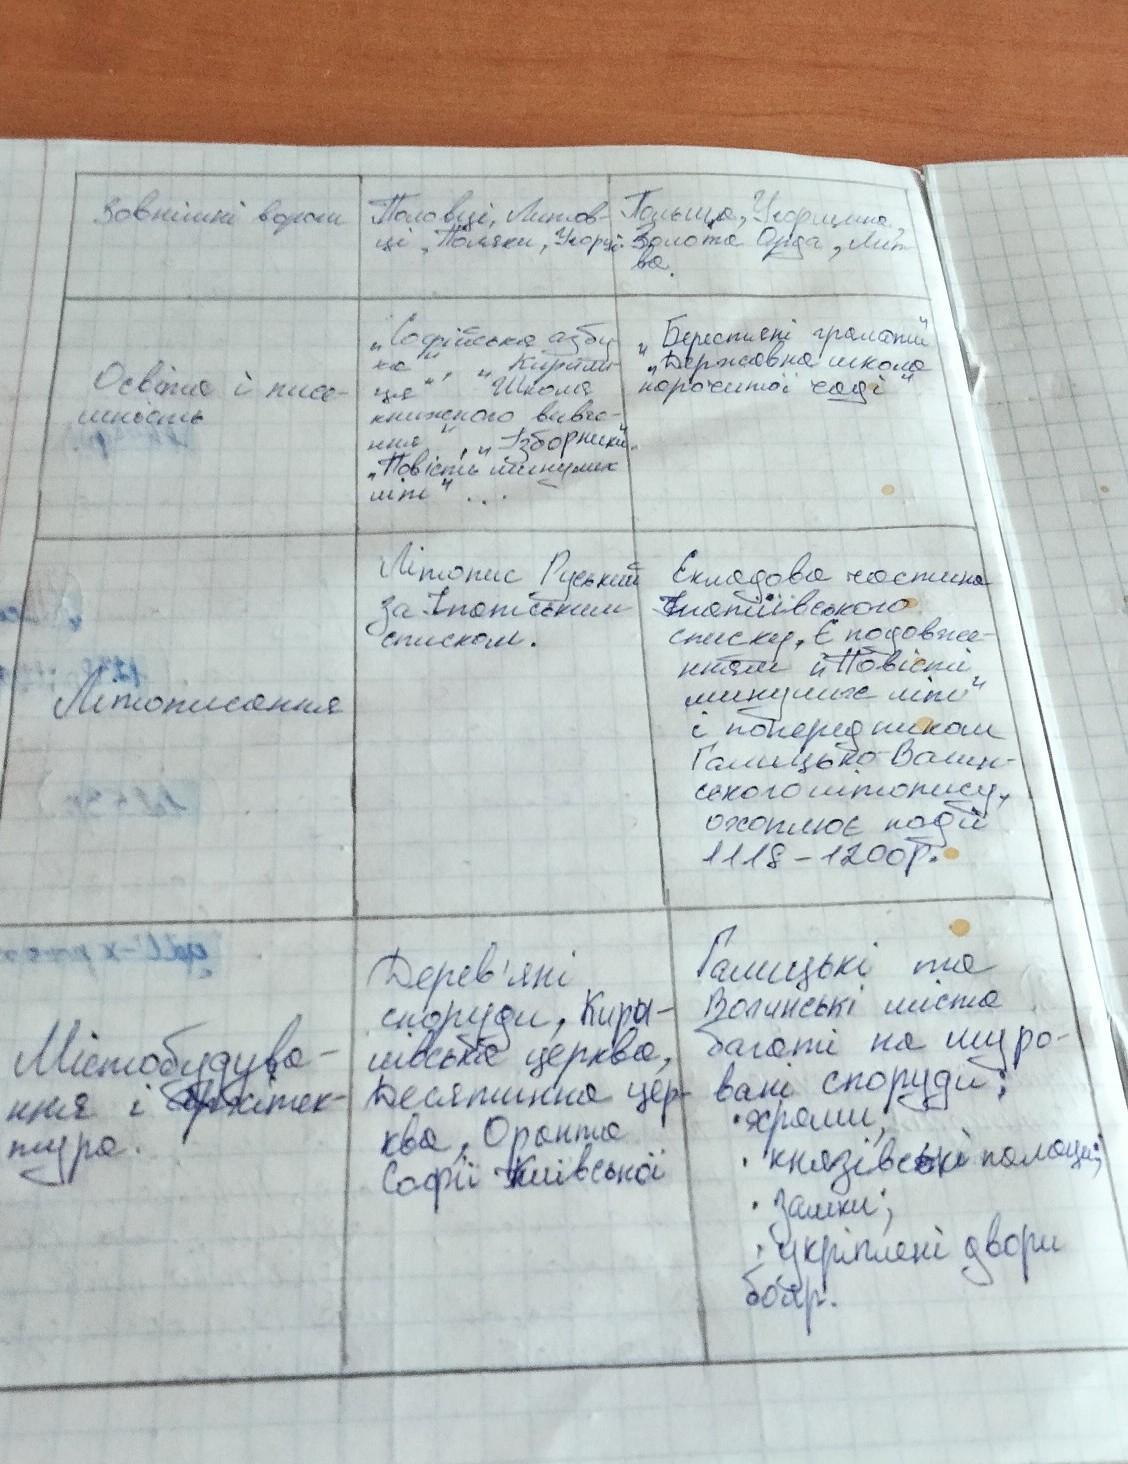 Зовнішні вороги
Половці, Литов-
ці, Поляки, Угорці.
Польща, Угорщина,
Золота Орда, Лит-
ва.
Освіта і писе-
мність
„Софійська азбу
ка", „Кирили-
ця" „Школа
книжного вивче-
ння", „Ізборники".
„Повість минулих
літ" ...
„Берестяні грамоти"
„Державна школа
нарочитої чаді"
Літописання
Літопис Руський
За Іпатським
списком.
Складова частина
Іпатіївського
списку. Є продовже-
нням „Повісті
минулих літ"
і попередником
Галицько-Волин-
ського літопису,
охоплює події
1118-1200р.
Містобудува-
ння і Архітек-
тура.
Дерев'яні
споруди, Кири-
лівська церква,
Десятинна цер-
ква, Оранта
Софії Київської
Галицькі та
Волинські міста
багаті на муро-
вані споруди:
• храми;
• князівські палаци;
• замки;
• укріплені двори
бояр.